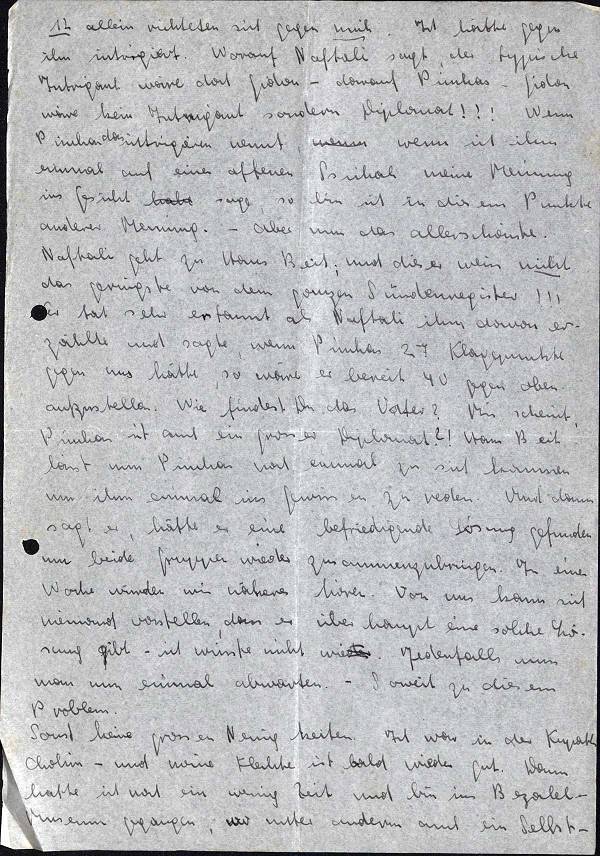 12 allein richteten sich gegen mich. Ich hätte gegen
ihn intrigiert. Worauf Naftali sagt, der typische
Intrigant wäre dort Gidon – darauf Pinhas – Gidon
wäre kein Intrigant sondern Diplomat!!! Wenn
Pinhas das intrigieren nennt wenn ich ihm
einmal auf einer offenen Sichah meine Meinung
ins Gesicht sage, so bin ich in diesem Punkte
anderer Meinung. – Aber nun das allerschönste.
Naftali geht zu Hans Beit, und dieser weiss nicht
das geringste von dem ganzen Sündenregister!!!
Er tat sehr erstaunt als Naftali ihm davon er-
zählte und sagte, wenn Pinhas 27 Klagepunkte
gegen uns hätte, so wäre er bereit 40 gegen oben
aufzustellen. Wie findest Du das Vater? Mir scheint,
Pinhas ist auch ein grosser Diplomat?! Hans Beit
lässt nun Pinhas noch einmal zu sich kommen
um ihm einmal ins Gewissen zu reden. Und dann
sagt er, hätte er eine befriedigende Lösung gefunden
um beide Gruppen wieder zusammenzubringen. In einer
Woche würden wir näheres hören. Von uns kann sich
niemand vorstellen, dass es überhaupt eine solche Lö-
sung gibt – ich wüsste nicht wie. Jedenfalls muss
man nun einmal abwarten. – Soweit zu diesem
Problem.
Sonst keine grossen Neuigkeiten. Ich war in der Kupath
Cholim – und meine Flechte ist bald wieder gut. Dann
hatte ich noch ein wenig Zeit und bin ins Bezalel-
Museum gegangen, wo unter anderem auch ein Selbst-